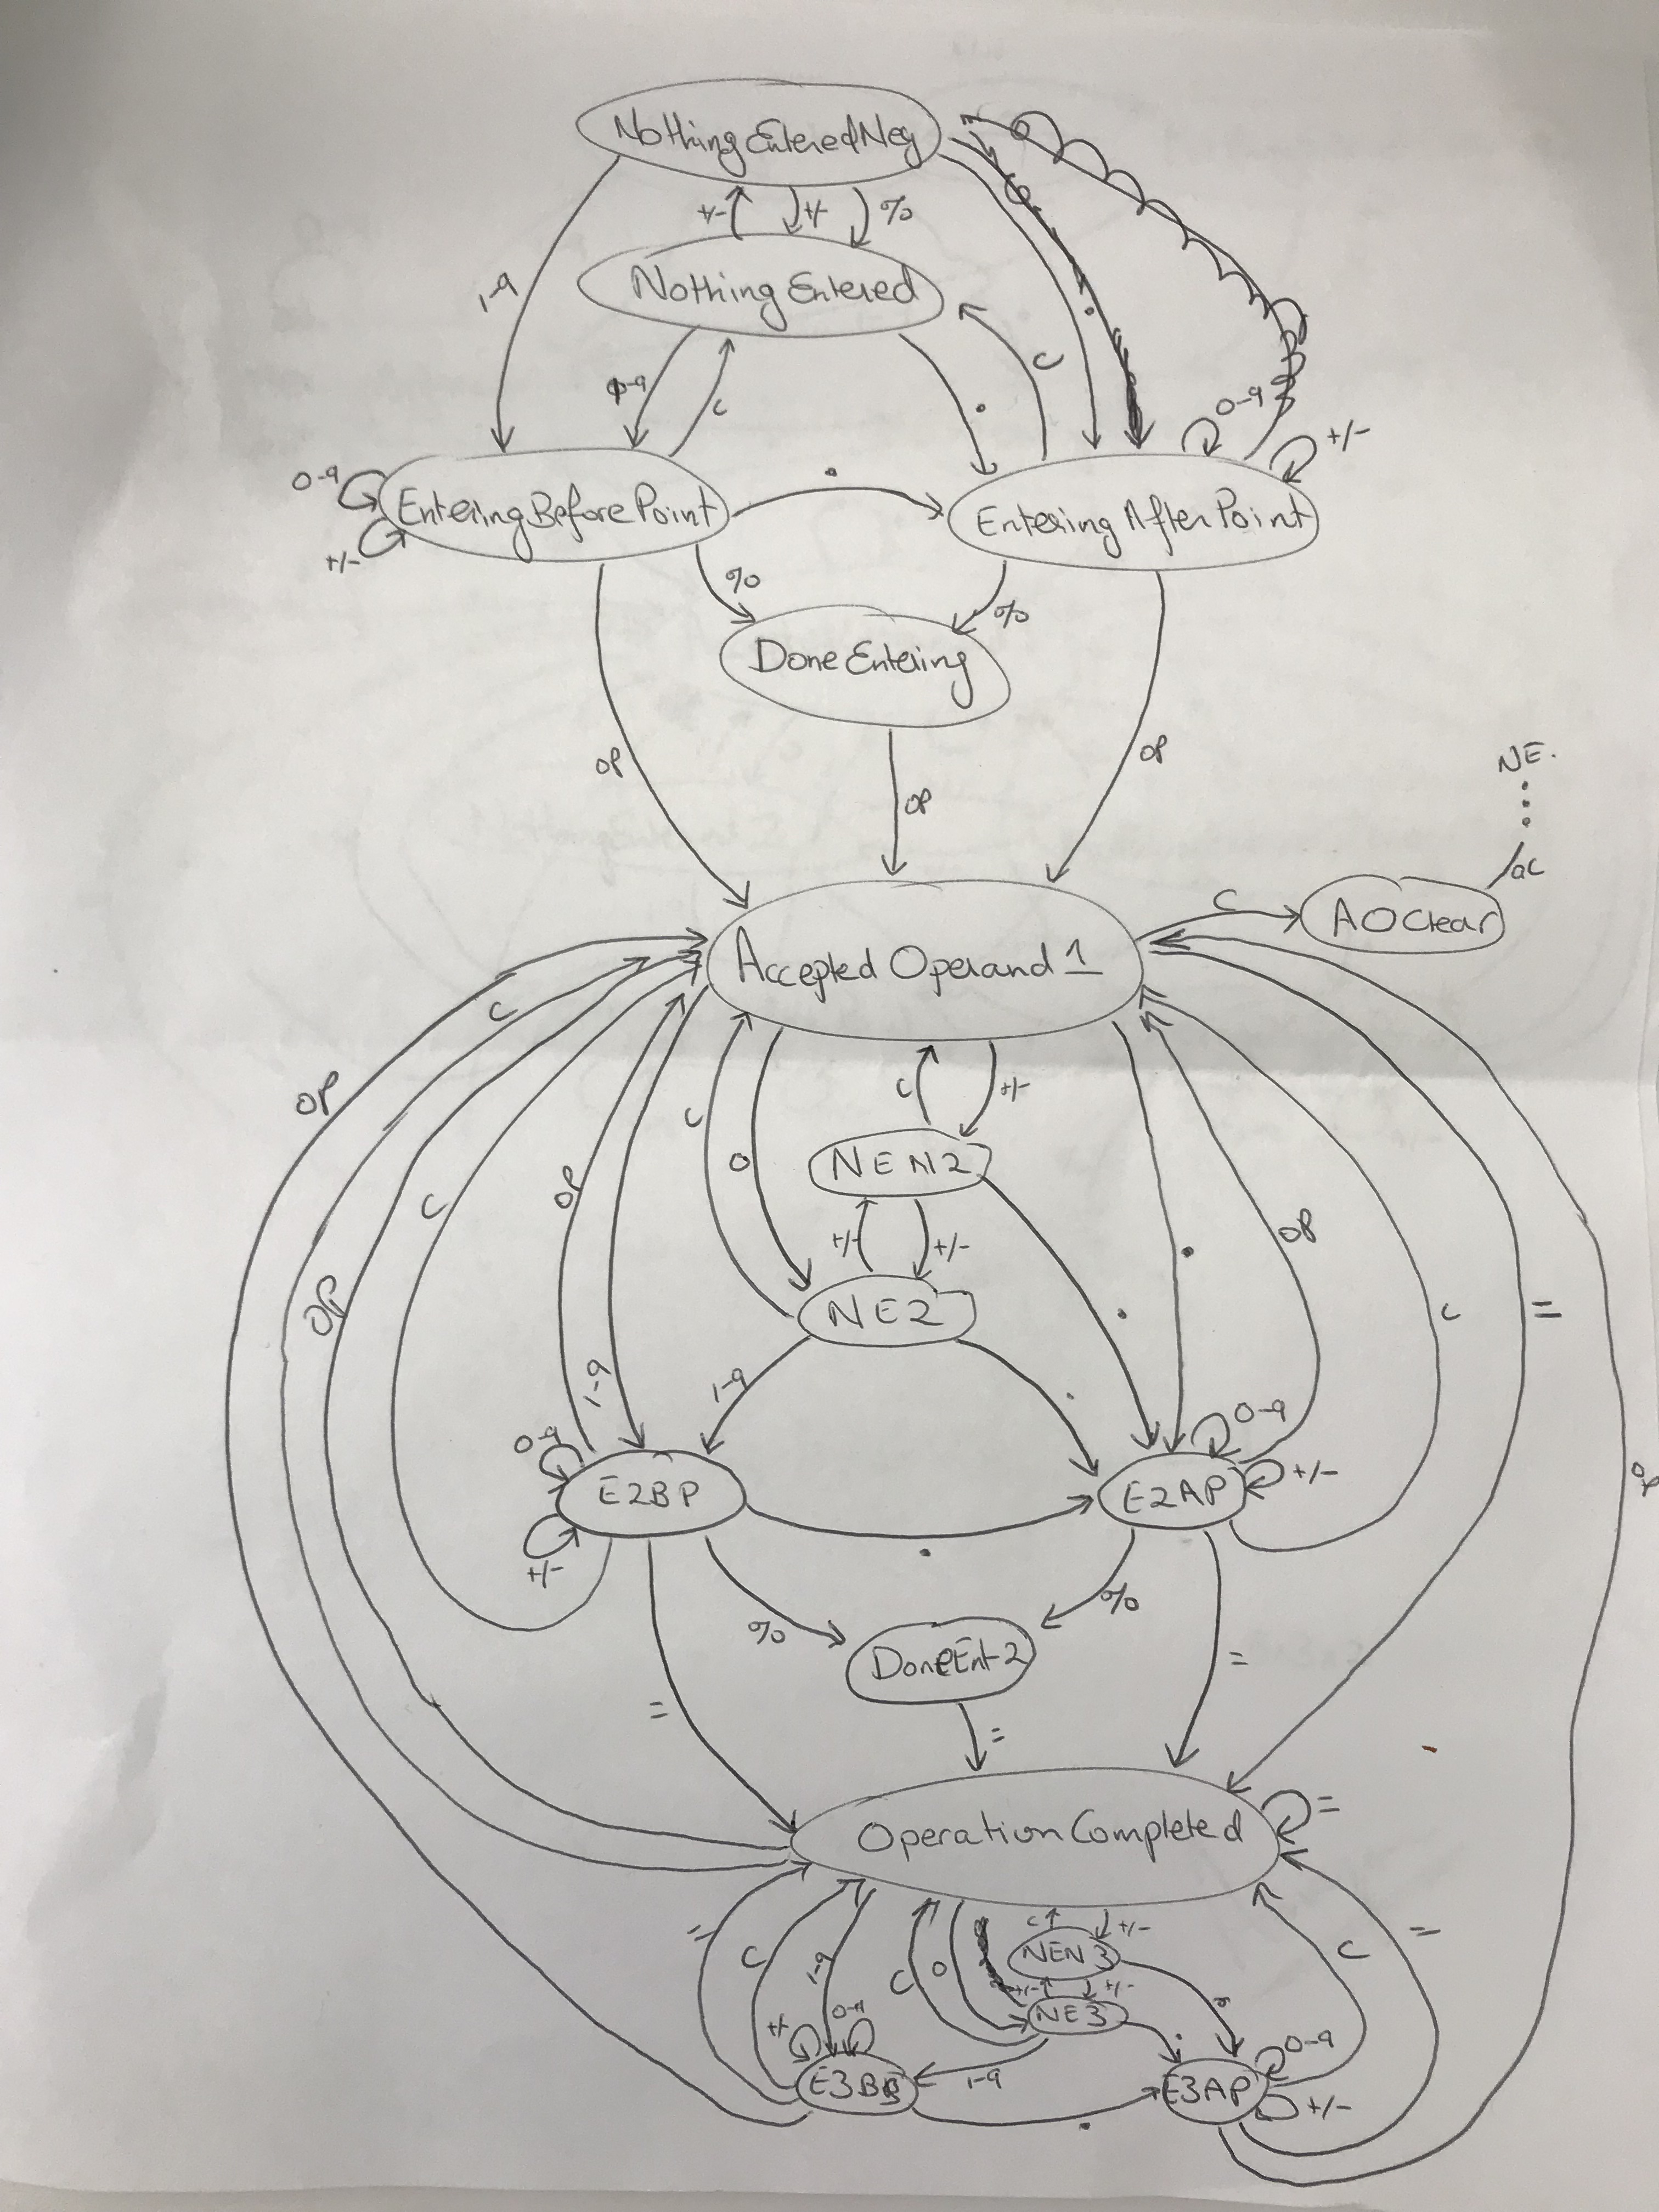 NothingEnteredNeg
+/- +/- %
1-9
NothingEntered
0-9 C . C .
0-9 +/-
0-9 EnteringBeforePoint . EnteringAfterPoint
+/-
% %
DoneEntering
OP OP OP
NE.
ac
C AOClear
AcceptedOperand1
C
OP C +/-
C O
NEN2
C OP +/- +/- . OP
OP NE2 . C =
1-9 1-9 .
0-9 0-9
E2BP E2AP +/-
OP
+/- .
% %
DoneEnt2
= = =
OperationCompleted =
= C 1-9 C O C +/- C =
NEN3
+/- +/- .
+/- 0-9 NE3 .
0-9
E3BP 1-9 E3AP
+/-
.